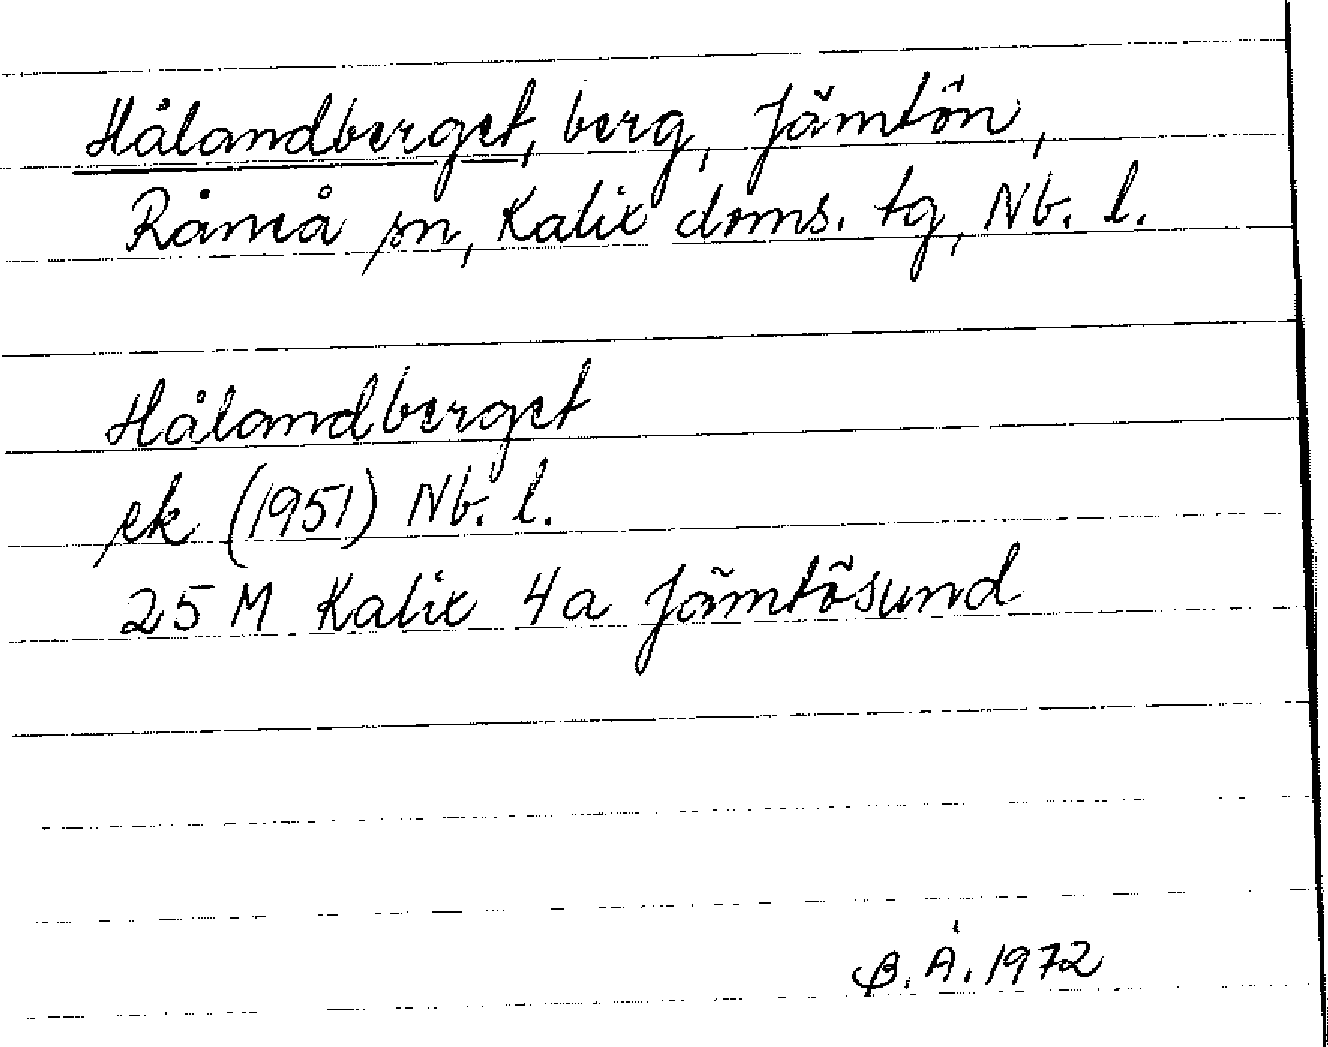 Hålandberget, berg, Jämtön,
Råneå sn, Kalix doms. tg, Nb. l.
Hålandberget
ek (1951) Nb. l.
25 M Kalix 4a Jämtösund
B. Å. 1972